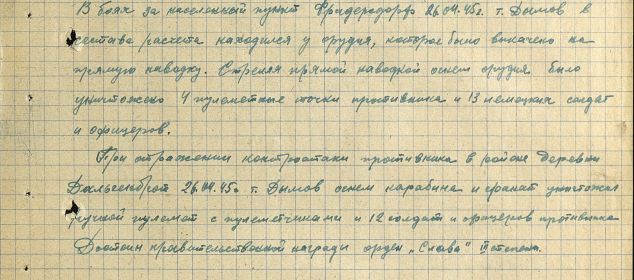 В боях за населенный пункт Фридерсдорф 26.04.45г. т. Дымов в
составе расчета находился у орудия, которое было выкачено на
прямую наводку. Стреляя прямой наводкой огнем орудия было
уничтожено 4 пулеметные точки противника и 13 немецких солдат
и офицеров.
При отражении контратаки противника в районе деревни
26.04.45г. т. Дымов огнем карабина и гранат уничтожил
ручной пулемет с пулеметчиками и 12 солдат и офицеров противника
Достоин правительственной награды орден „Слава" степени.